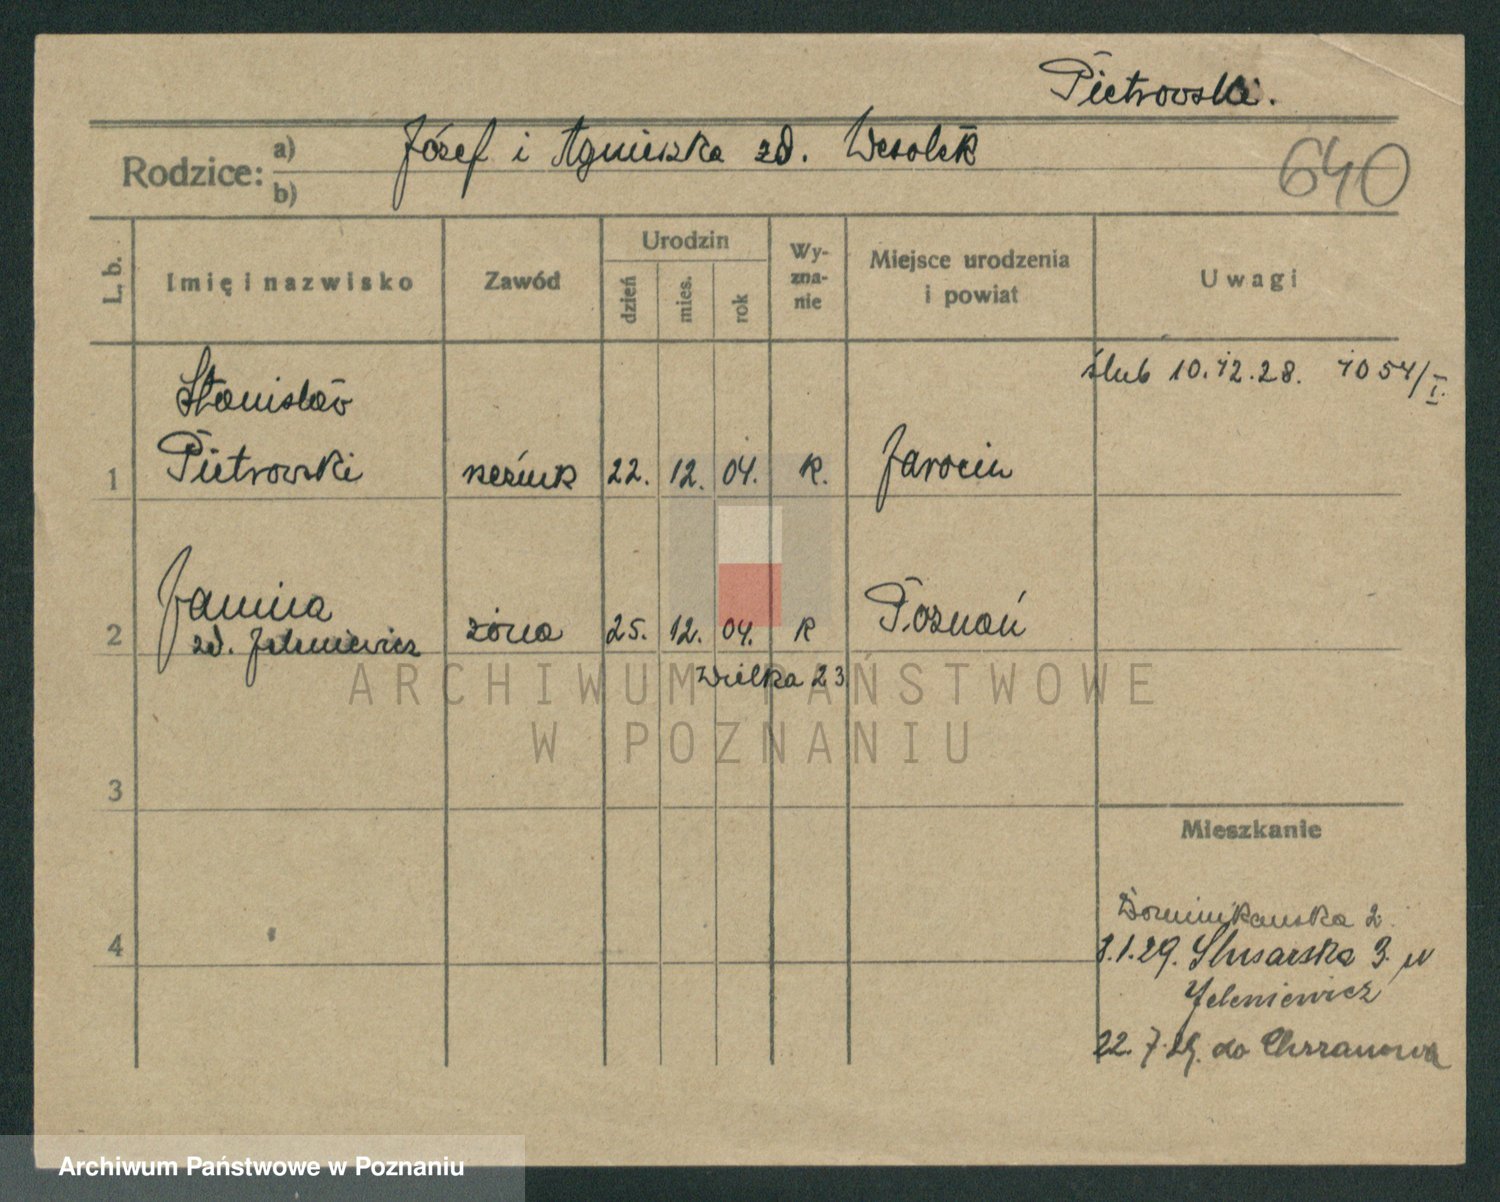 Pietrowski.
Rodzice: a) Józef i Agnieszka zd. Wesołek
b)
640
L. b.
Imię i nazwisko
Zawód
Urodzin
dzień
mies.
rok
Wy-
zna-
nie
Miejsce urodzenia
i powiat
Uwagi
ślub 10.12.28. 1054/I.
Stanisław
1 Pietrowski 22. 12. 04. K. Jarocin
Janina
2 zd. Jeleniewicz żona 25. 12. 04. K Poznań
Wielka 23
ARCHIWUM PAŃSTWOWE
W POZNANIU
3
Mieszkanie
Dominikańska 2.
4
8.1.29. Ślusarska 3. w
Jeleniewicz
22.7.29. do Chrzanowa
Archiwum Państwowe w Poznaniu